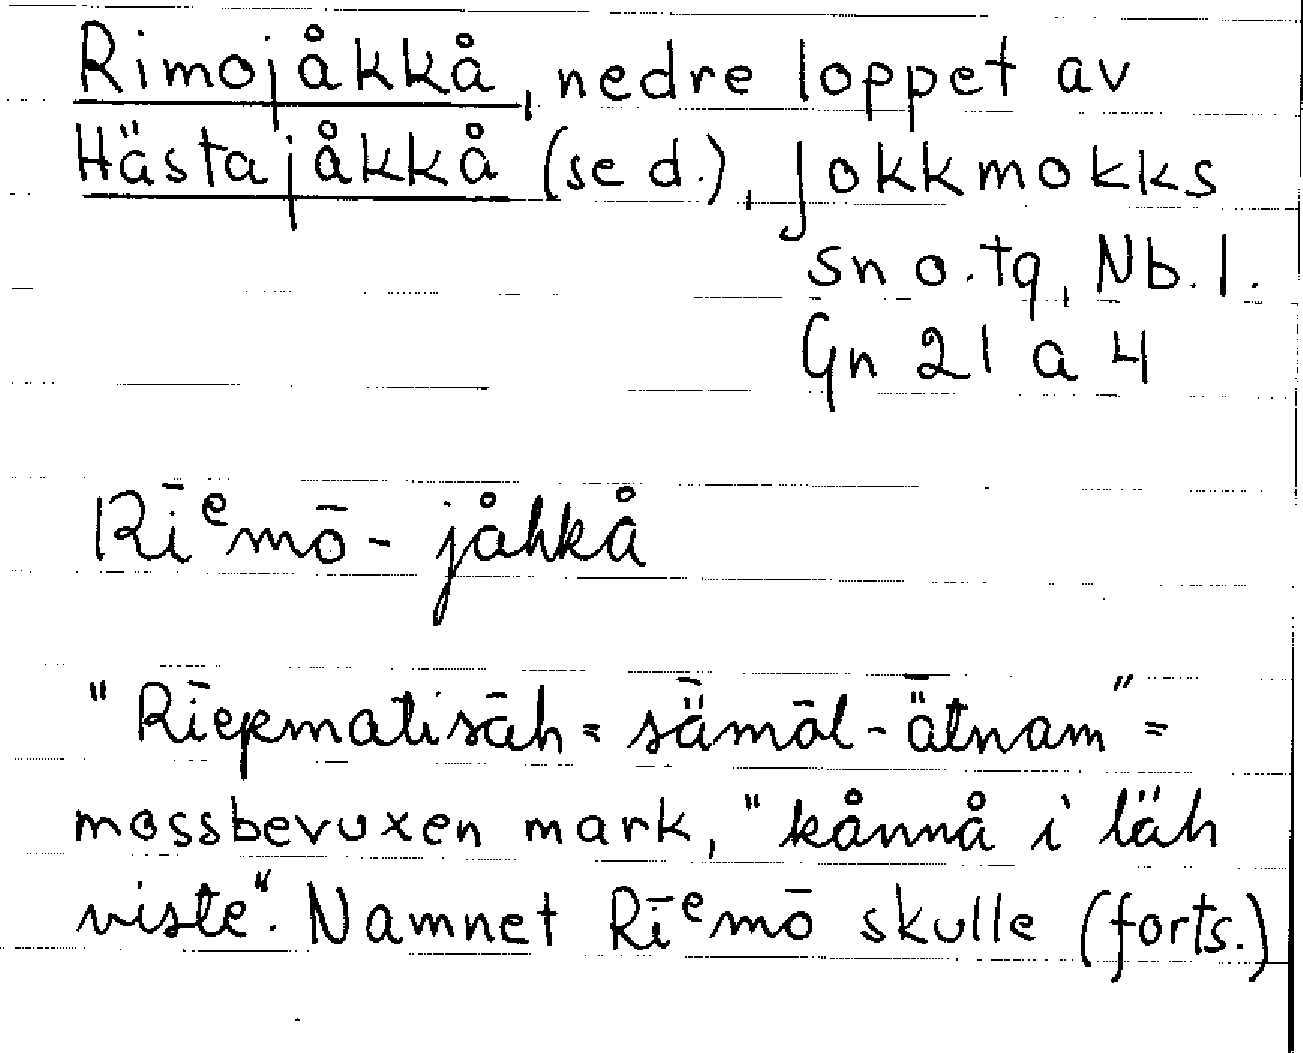 Rimojåkkå, nedre loppet av
Hästajåkkå (se d.), Jokkmokks
sn o. tg, Nb. l.
Gn 21 a 4
Rīᵉmō - jåhkå
"Rīepmatisāh = sǟmāl - ǟtnam" =
mossbevuxen mark, "kånnå i läh
viste". Namnet Rīᵉmō skulle (forts.)